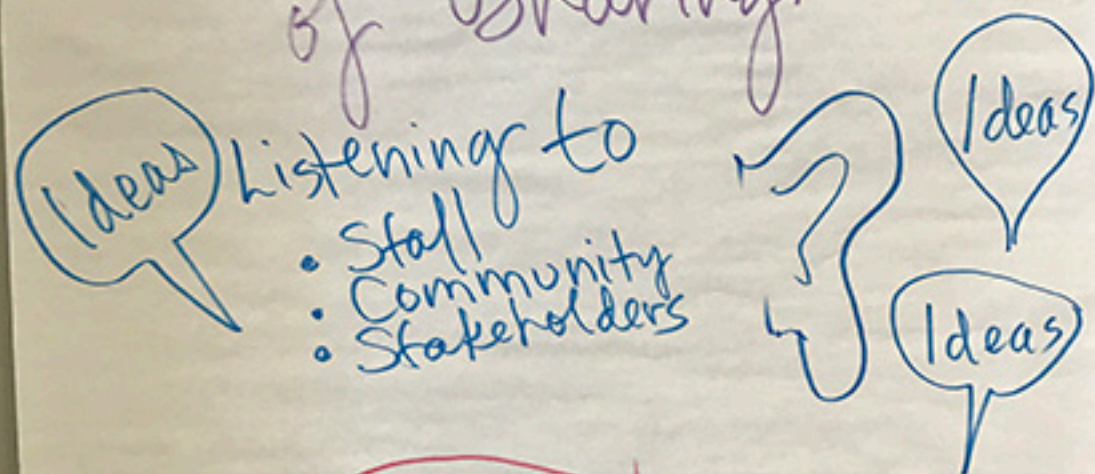 of sharing.
Ideas
Listening to
• Staff
• Community
• Stakeholders
Ideas
Ideas